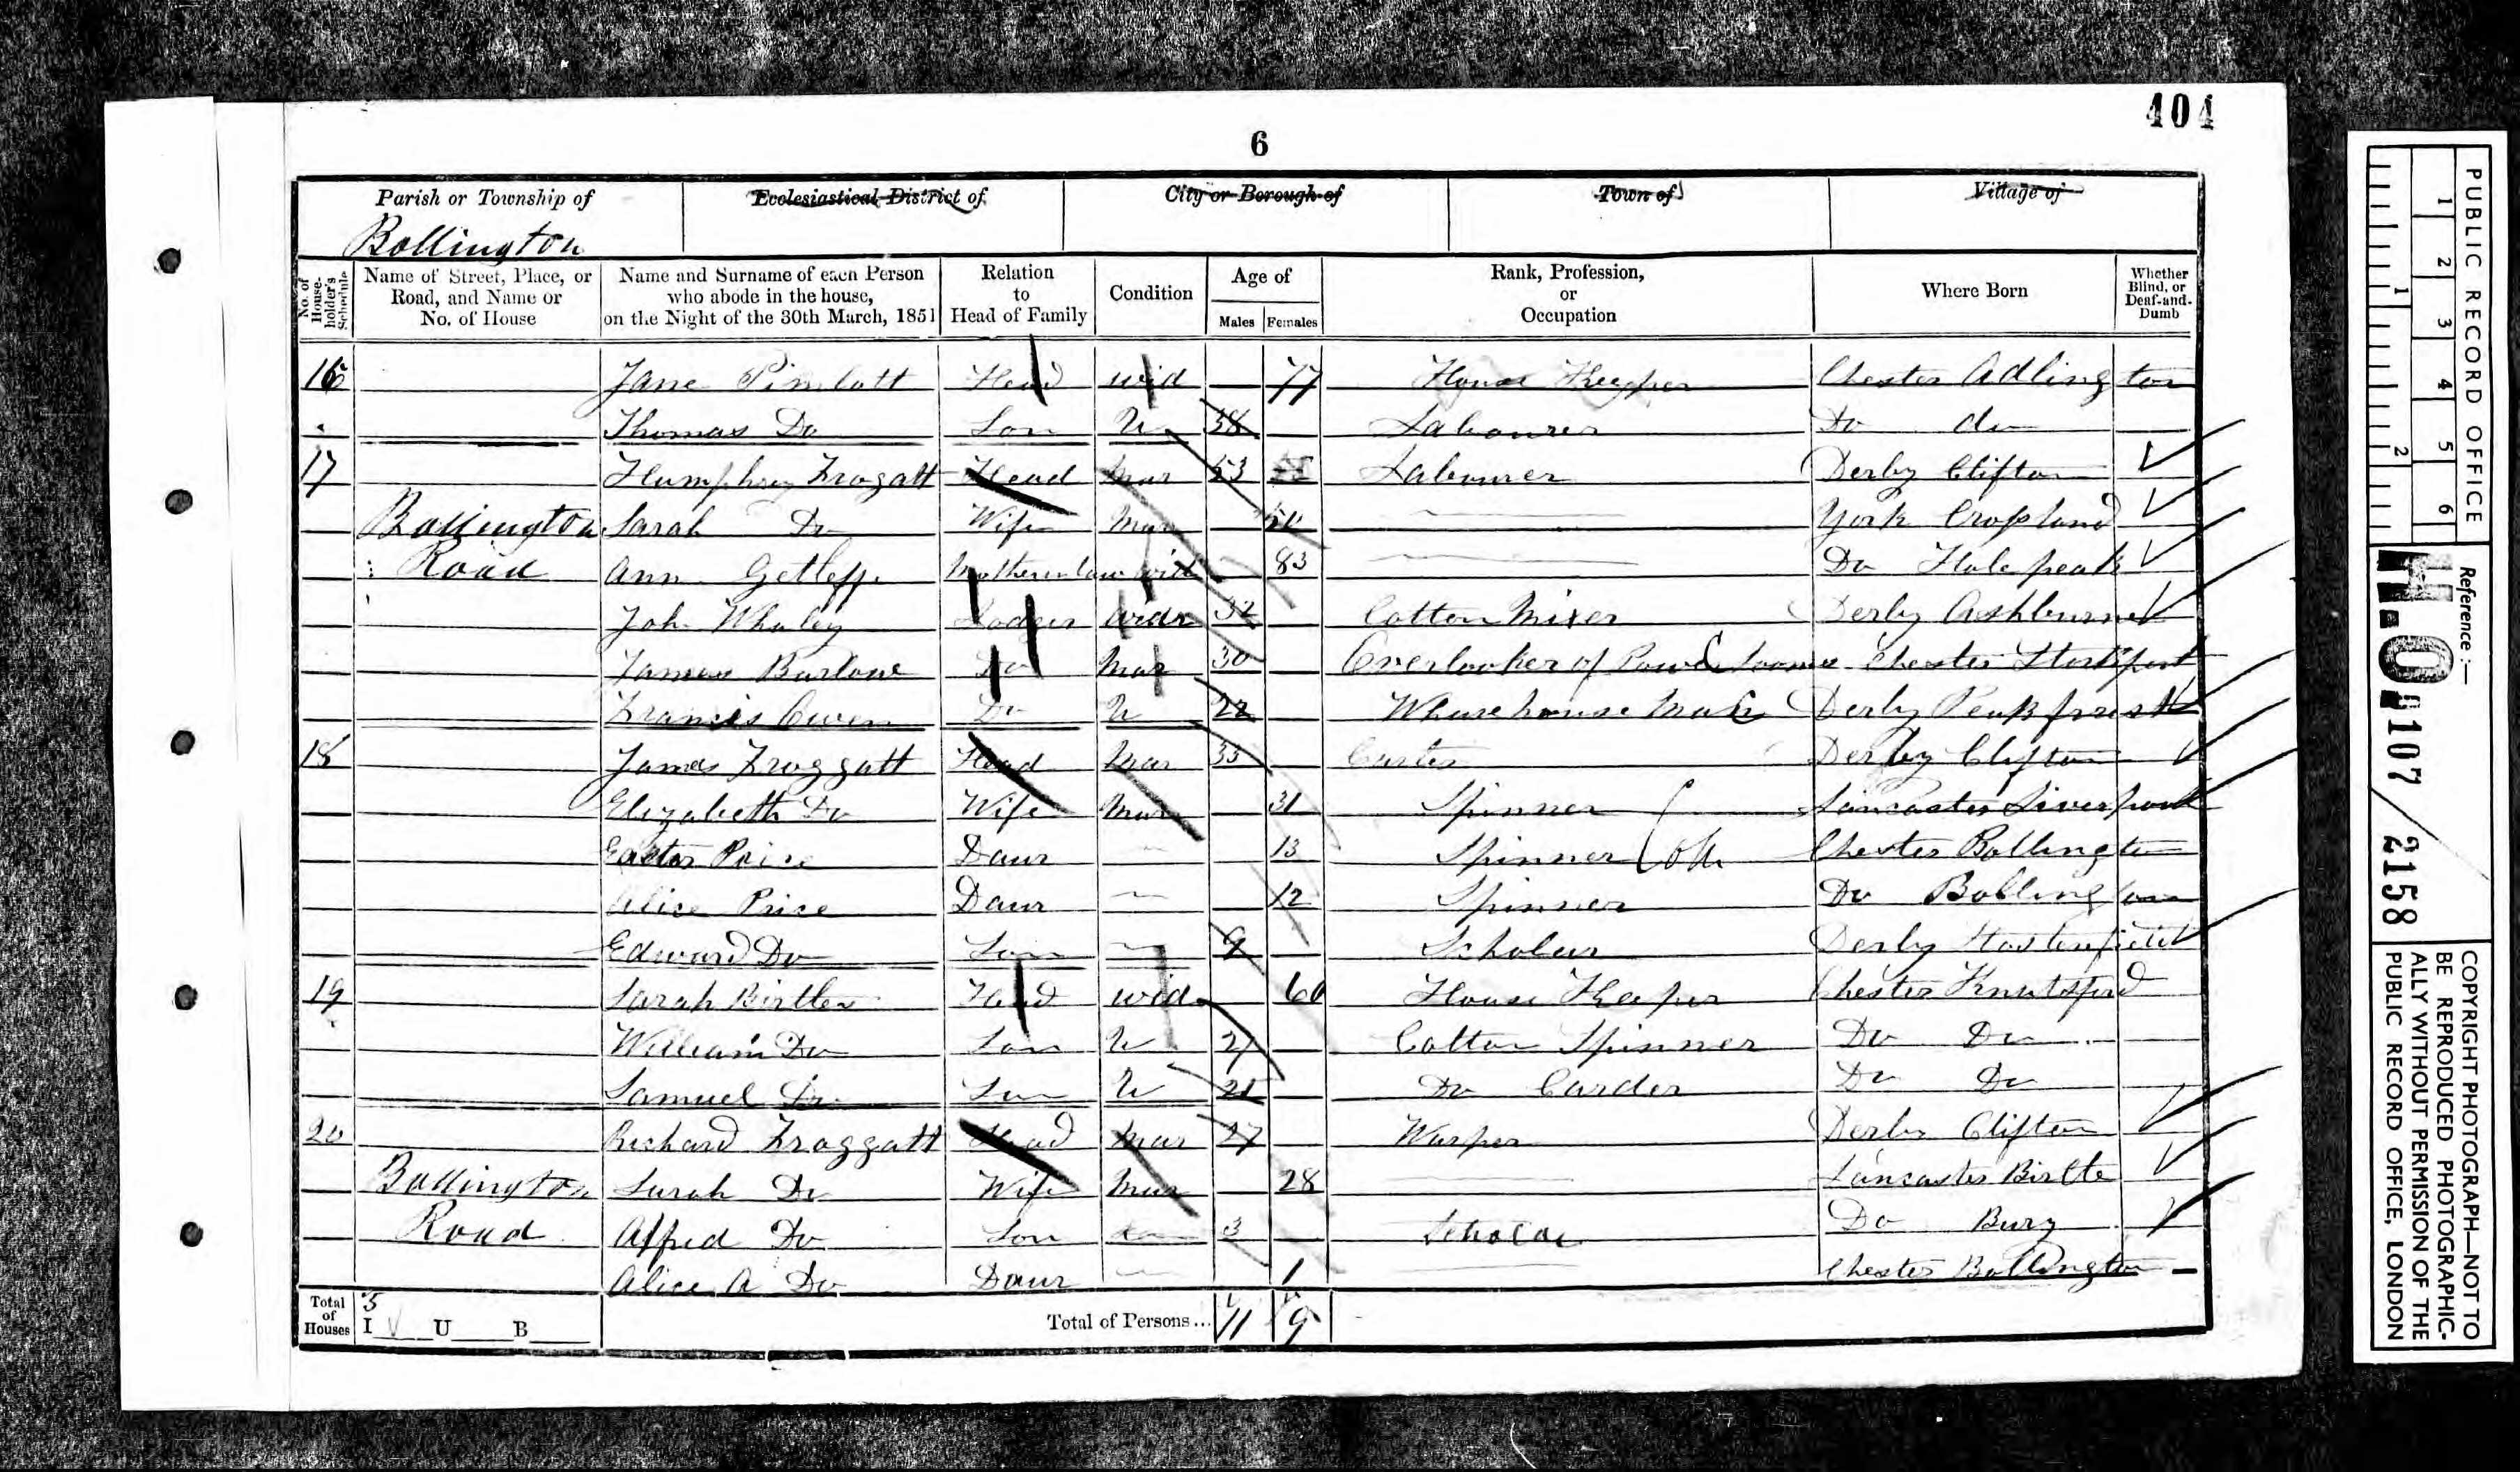 404
6
Parish or Township of
Ecclesiastical District of
City or Borough of
Town of
Village of
Bollington
No. of House-holder's Schedule
Name of Street, Place, or Road, and Name or No. of House
Name and Surname of each Person who abode in the house, on the Night of the 30th March, 1851
Relation to Head of Family
Condition
Age of
Males
Females
Rank, Profession, or Occupation
Where Born
Whether Blind, or Deaf-and-Dumb
16 Jane Pimlott Head wid 77 House Keeper Chester Adlington
Thomas Do Son U 38 Labourer Do do
17 Humphrey Frogatt Head Mar 53 Labourer Derby Clifton
Bollington Sarah Do Wife Mar York
Road Ann Mother in law wid 83 Do
John Whaley Lodger widr 32 Cotton Mixer Derby Ashburne
James Barlow Do Mar 30 Overlooker of Power Looms Chester Stockport
Francis Owen Do U 22 Wharehouse Man Derby Peak forest
18 James Froggatt Head Mar 33 Carter Derby Clifton
Elizabeth Do Wife Mar 31 Spinner Lancaster Liverpool
Price Daur 13 Spinner Chester Bollington
Alice Price Daur 12 Spinner Do Bollington
Edward Do Son 9 Scholar Derby
19 Sarah Birtles Head wid 60 House Keeper Chester Knutsford
William Do Son U 27 Cotton Spinner Do Do
Samuel Do Son U 21 Do Carder Do Do
20 Richard Froggatt Head Mar 27 Warper Derby Clifton
Bollington Sarah Do Wife Mar 28 Lancaster Birtle
Road Alfred Do Son 3 Scholar Do Bury
Alice A Do Daur 1 Chester Bollington
Total of Houses 5 I U B Total of Persons... 11 9
PUBLIC RECORD OFFICE
1 2 3 4 5 6
1 2
Reference :—
H.O. 107 / 2158
COPYRIGHT PHOTOGRAPH—NOT TO
BE REPRODUCED PHOTOGRAPHIC-
ALLY WITHOUT PERMISSION OF THE
PUBLIC RECORD OFFICE, LONDON